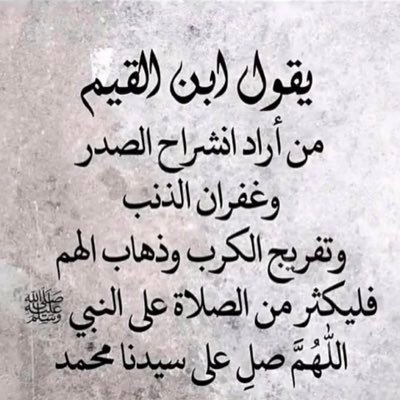 يقول ابن القيم
من أراد انشراح الصدر
وغفران الذنب
وتفريج الكرب وذهاب الهم
فليكثر من الصلاة على النبي ﷺ
اللَّهُمَّ صلِ على سيدنا محمد